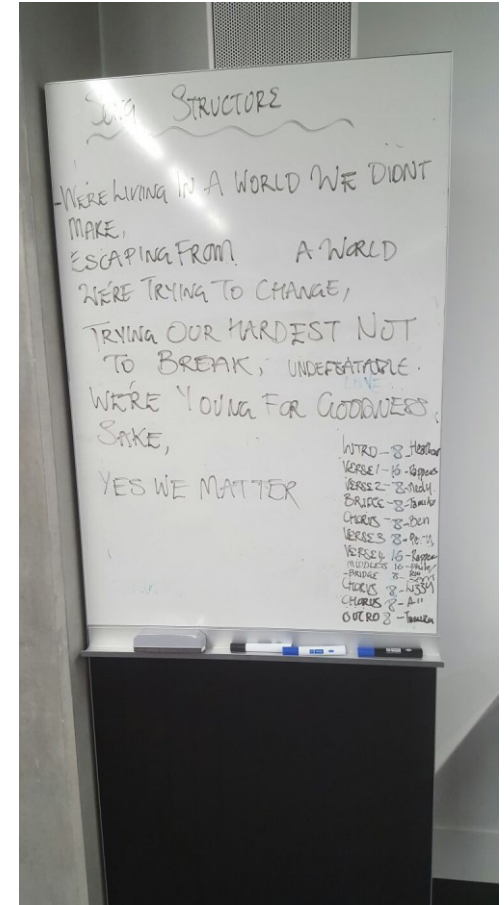 SONG STRUCTURE
-WE'RE LIVING IN A WORLD WE DIDNT
MAKE,
ESCAPING FROM A WORLD
WE'RE TRYING TO CHANGE,
TRYING OUR HARDEST NOT
TO BREAK, UNDEFEATABLE.
LOVE
WE'RE YOUNG FOR GOODNESS
SAKE,
YES WE MATTER
INTRO-8-
VERSE1-16-Rappers
VERSE2-8-
BRIDGE-8-
CHORUS-8-Ben
VERSE3-8-
VERSE4 16-Rappers
MIDDLE8 16-
-BRIDGE 8-
CHORUS 8-Lissy
CHORUS 8-All
OUTRO 8-